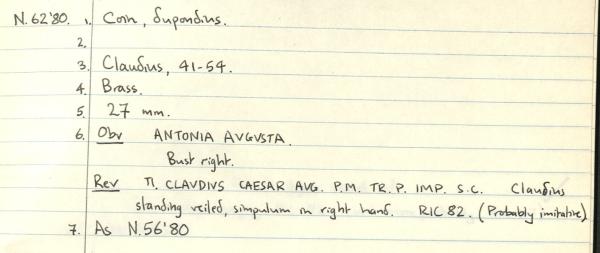 N.62'80. 1. Coin, dupondius.
2.
3. Claudius, 41-54.
4. Brass.
5. 27 mm.
6. Obv ANTONIA AVGVSTA.
Bust right.
Rev TI. CLAVDIVS CAESAR AVG. P.M. TR. P. IMP. S.C. Claudius
standing veiled, simpulum in right hand. RIC 82. (Probably imitative)
7. As N.56'80